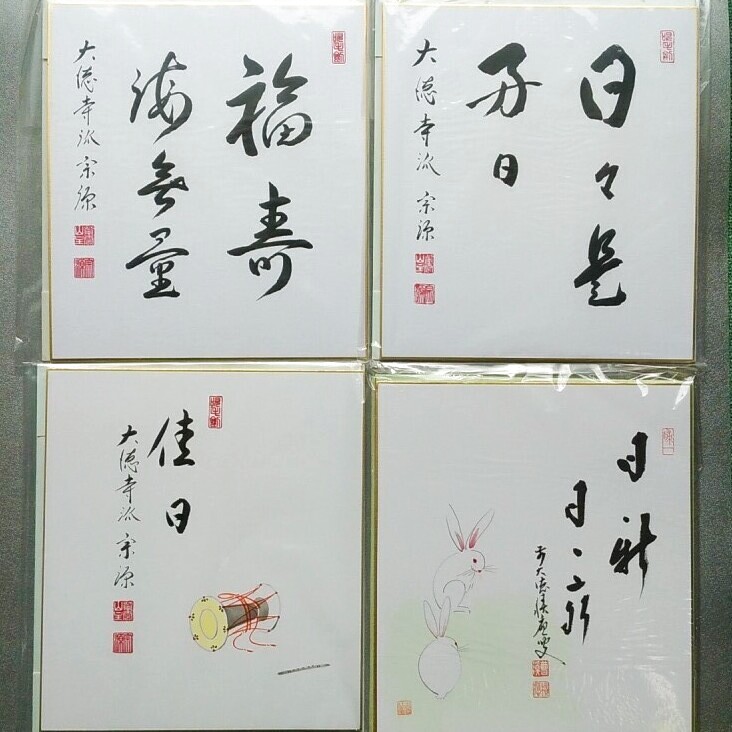 福寿
海無量
大徳寺派宗源
日々是
好日
大徳寺派 宗源
佳日
大徳寺派宗源
日新
日々新